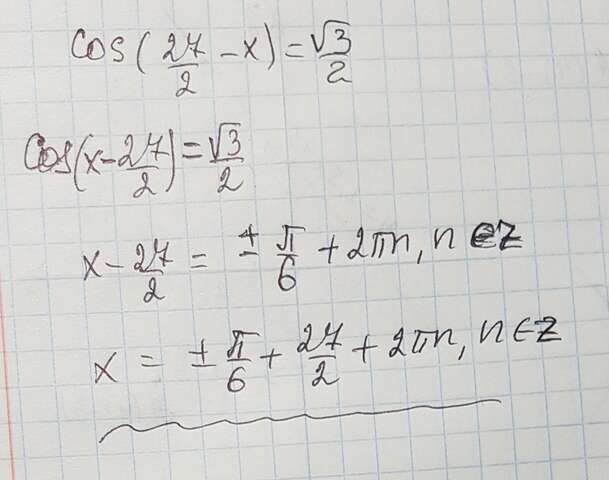 cos(27/2 - x) = √3/2
cos(x - 27/2) = √3/2
x - 27/2 = ± π/6 + 2πn, n ∈ Z
x = ± π/6 + 27/2 + 2πn, n ∈ Z